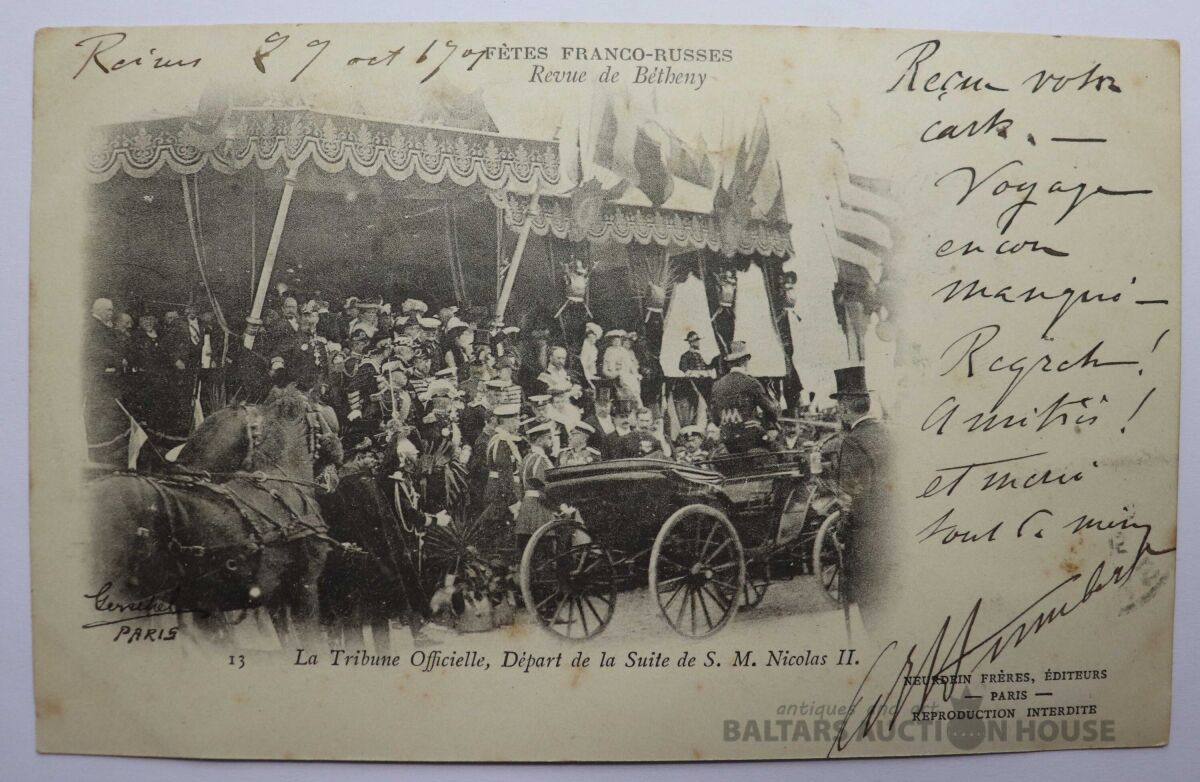 Reims 29 oct 1901
FÊTES FRANCO-RUSSES
Revue de Bétheny
Reçue votre
carte. —
Voyage
encore
manqué —
Regrets!
Amitiés!
et merci
tout de même
Humbert
PARIS
13 La Tribune Officielle, Départ de la Suite de S. M. Nicolas II.
NEURDEIN FRÈRES, ÉDITEURS
— PARIS —
REPRODUCTION INTERDITE
antiques and art
BALTARS AUCTION HOUSE